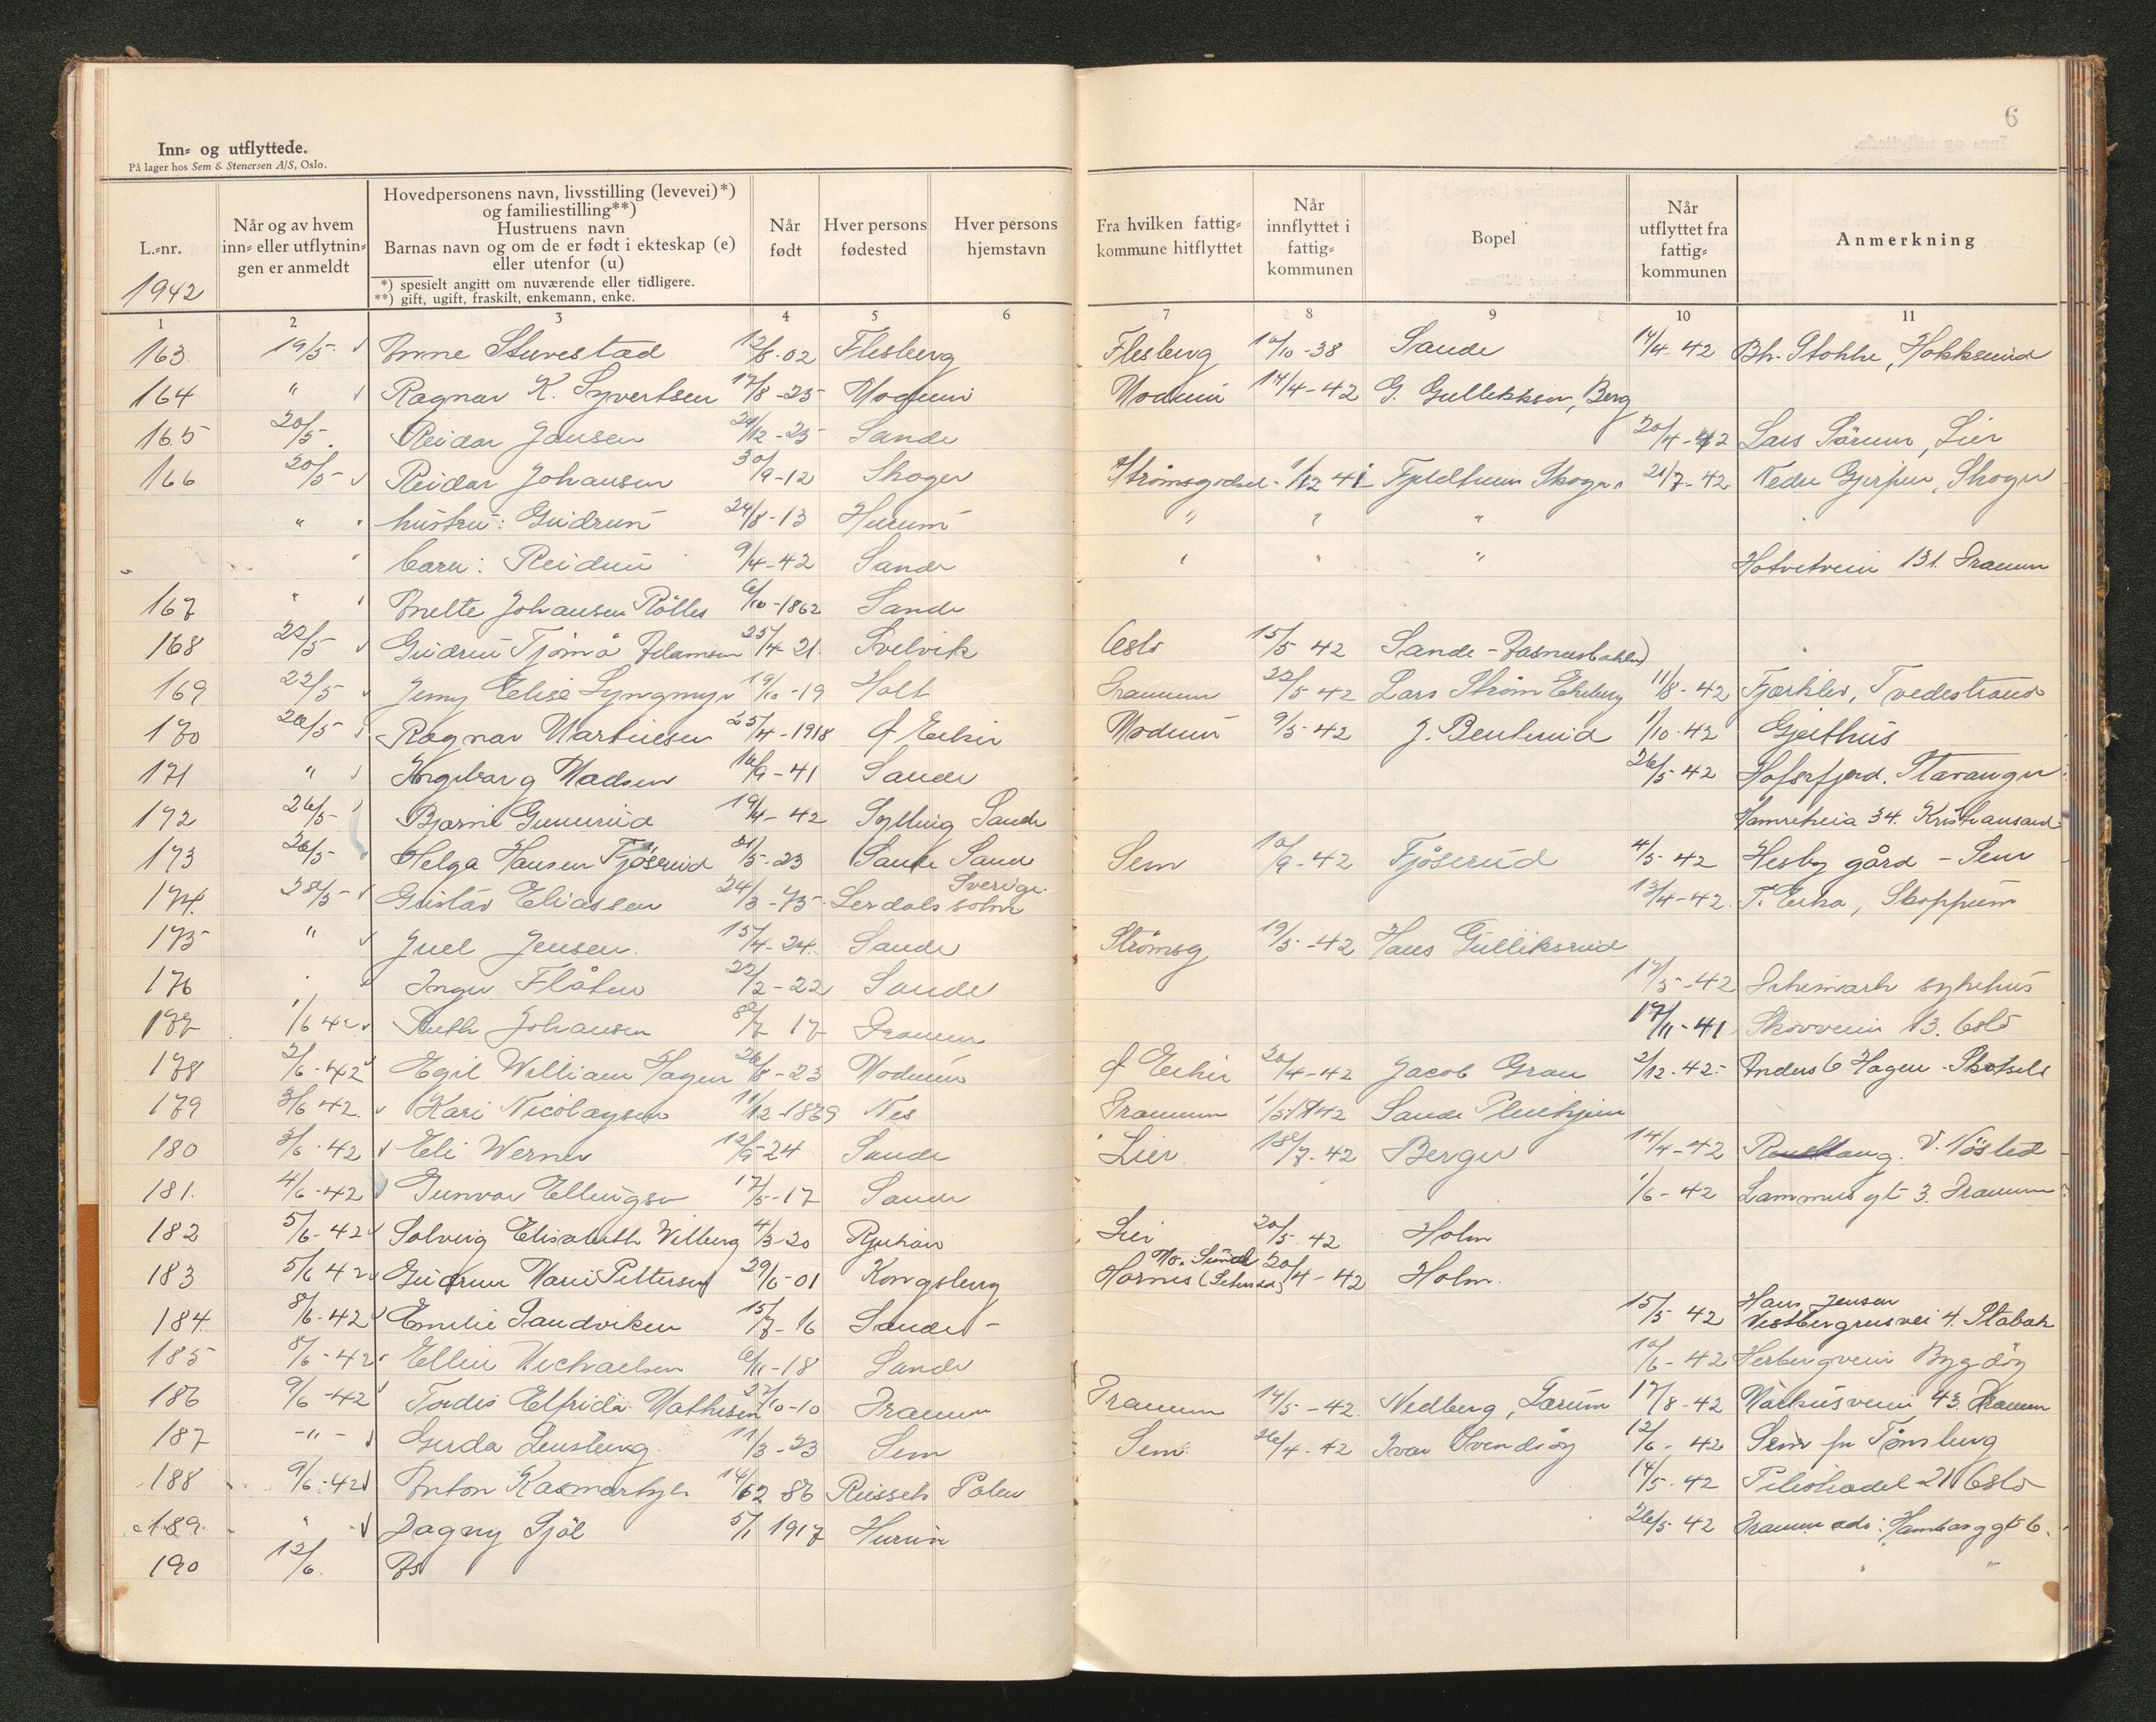 6
Inn- og utflyttede.
På lager hos Sem & Stenersen A/S, Oslo.
L.-nr. 1942 | Når og av hvem inn- eller utflytningen er anmeldt | Hovedpersonens navn, livsstilling (levevei)*) og familiestilling**) Hustruens navn Barnas navn og om de er født i ekteskap (e) eller utenfor (u) *) spesielt angitt om nuværende eller tidligere. **) gift, ugift, fraskilt, enkemann, enke. | Når født | Hver persons fødested | Hver persons hjemstavn | Fra hvilken fattigkommune hitflyttet | Når innflyttet i fattigkommunen | Bopel | Når utflyttet fra fattigkommunen | Anmerkning
1 2 3 4 5 6 7 8 9 10 11
163 19/5 Anne Sturestad 12/8-02 Flesberg Flesberg 10/10-38 Sande 14/4-42 Hokksund
164 " Ragnar K. Syvertsen 17/8-25 Modum Modum 14/4-42 G. Gulliksen, Berg
165 20/5 Reidar Jansen 24/12-25 Sande 20/4-42 Lars Sørum, Lier
166 20/5 Reidar Johansen 30/9-12 Skoger Strømsgodset 1/12 41 Skoger 21/7-42 Nedre Gjerpen, Skoger
" hustru: Gudrun 24/8-13 Hurum " " "
" barn: Reidun 9/4-42 Sande " " " Hotvetveien 131. Drammen
167 " Anette Johansen 6/10-1862 Sande
168 22/5 Gudrun Tjømø Adamsen 25/4-21. Svelvik Oslo 15/5 42 Sande
169 22/5 Jenny Elise Lyngmyr 19/10-19 Holt Drammen 22/5-42 Lars Strøm Ekeberg 11/8-42 Tvedestrand
170 26/5 Ragnar Martinsen 25/4-1918 Ø Eiker Modum 9/5-42 J. Bentsrud 1/10-42 Geithus
171 " Ingeborg Madsen 16/9-41 Sande 26/5 42 Hafrsfjord. Stavanger
172 26/5 Bjarne Gunnerud 19/4-42 Sylling Sande Hamreheia 34. Kristiansand
173 26/5 Helga Hansen Fjøserud 21/5-23 Sande Sande Sem 10/9-42 Fjøserud 4/5-42 Hesby gård - Sem
174. 28/5 Gustav Eliassen 24/3-75 Lerdals sokn Sverige. 13/4-42 T. Eika, Skoppum
175 " Juel Jensen. 15/4-24. Sande Strømsg 19/5-42 Hans Gulliksrud
176 Inger Flåten 22/2-22 Sande 17/5-42 Dikemark sykehus
177 1/6 42 Ruth Johansen 8/7 17 Drammen 17/11-41 Skovveien 13. Oslo
178 2/6-42 Egil William Hagen 26/8-23 Modum Ø Eiker 20/4-42 Jacob Grau 2/12-42 Anders O Hagen - Skotselv
179 3/6 42. Kari Nicolaysen 11/12-1869 Nes Drammen 1/5-1942 Sande Pleiehjem
180 3/6-42 Eli Werner 12/9-24 Sande Lier 18/7-42 Berger 14/4-42 V. Nøsted
181. 4/6-42 Gunvor Ellingsen 17/5-17 Sande 1/6-42 Lammers gt 3. Drammen
182 5/6-42 Solveig Elisabeth Vilberg 4/3-20 Rjukan Lier 20/5 42 Holm
183 5/6 42 Gudrun Marie Pettersen 29/6-01 Kongsberg Hornes 20/4-42 Holm.
184. 8/6-42 Emilie Sandviken 15/7-16 Sande 15/5 42 Hans Jensen 4. Stabæk
185 8/6-42 Ellen Michaelsen 6/11-18 Sande 10/6-42 Bygdøy
186 9/6-42 Tordis Elfrida Mathisen 27/10-10 Drammen Drammen 14/5-42. Nedberg, Lærum 17/8-42 Markusveien 43. Drammen
187 -"- Gerda Lensberg 11/3-23 Sem Sem. 26/4-42 Ivar Svendsøy 12/6-42 Sem pr Tønsberg
188 9/6-42 Anton 14/62 86 Polen 14/5-42 Pilestredet 21 Oslo
189. " Dagny Sjøl 5/1 1917 Hurum 26/5 42 Drammen adr: Hamborggt 6.
190 12/6.